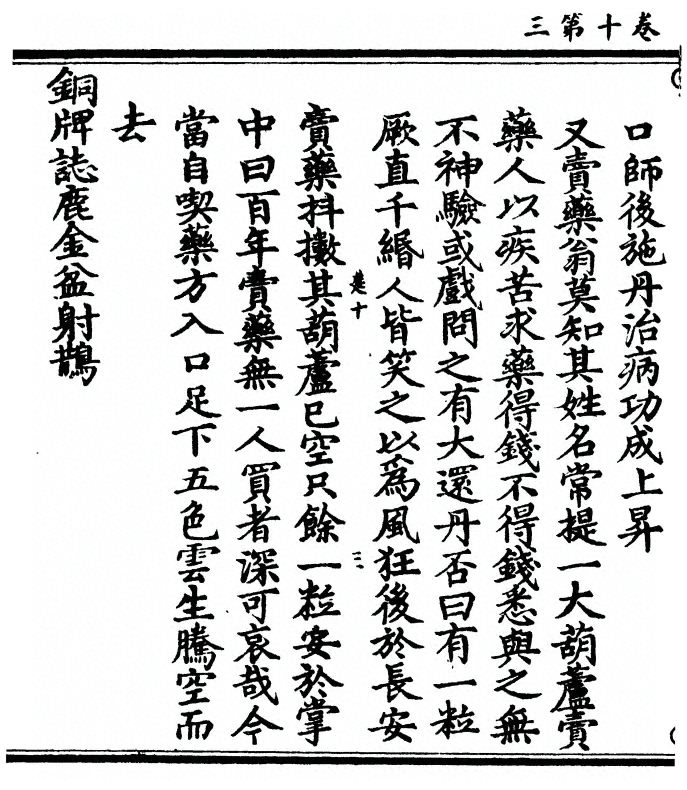 卷十第三
口師後施丹治病功成上昇
又賣藥翁莫知其姓名常提一大葫蘆賣
藥人以疾苦求藥得錢不得錢悉與之無
不神驗或戲問之有大還丹否曰有一粒
厥直千緡人皆笑之以為風狂後於長安
賣藥抖擻其葫蘆已空只餘一粒安於掌
中曰百年賣藥無一人買者深可哀哉今
當自喫藥方入口足下五色雲生騰空而
去
銅牌誌鹿金盆射鵲